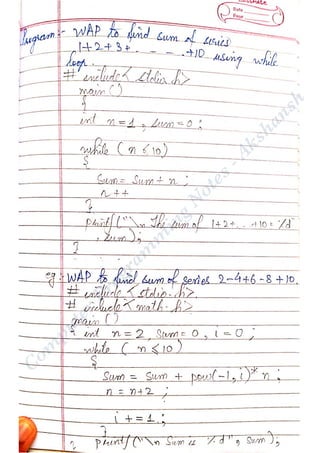 classmate
Date
Page
Program:- WAP to find sum of series
1+2+3+ . - - - . +10 using while
loop.
# include < stdio.h>
main()
{
int n=1, sum=0;
while ( n ≤ 10)
{
Sum = Sum + n ;
n ++
}
printf("\n The sum of 1+2+. . +10 = %d"
, sum);
}
eg:- WAP to find sum of series 2-4+6-8+10.
# include < stdio.h>.
# include < math.h>
main()
{ int n=2, Sum=0, i=0;
while ( n ≤ 10)
{
Sum = Sum + pow(-1, i)* n;
n = n+2 ;
i + = 1 ;
}
} printf("\n Sum is %d", Sum);
Computer Programming Notes - Akshansh